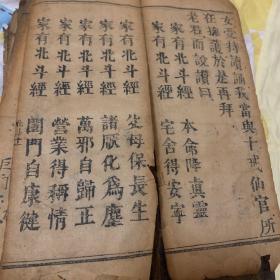 女受持讀誦我當與十戒仙官所
在擁護於是再拜
老君而說讚曰
家有北斗經 本命降眞靈
家有北斗經 宅舍得安寧
家有北斗經 父母保長生
家有北斗經 諸厭化爲塵
家有北斗經 萬邪自歸正
家有北斗經 營業得稱情
家有北斗經 閤門自康健